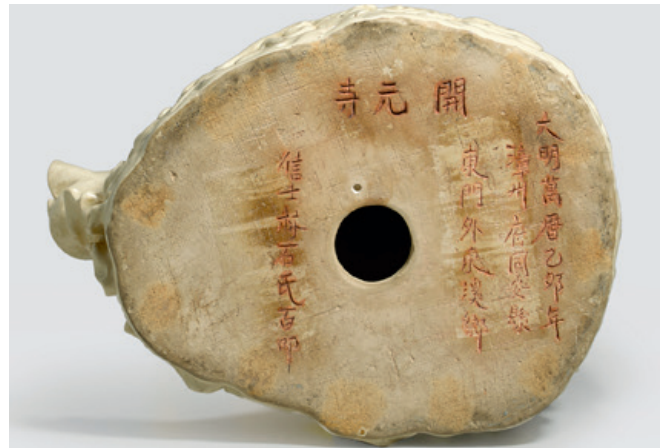 開元寺
大明萬曆乙卯年
州府同安縣
東門外鄉
信士林石氏百叩